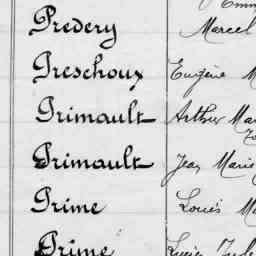 Predery Marcel
Preschoux Eugène M
Primault Arthur Mar
Primault Jean Marie
Prime Louis M
Prime Lucien Jules